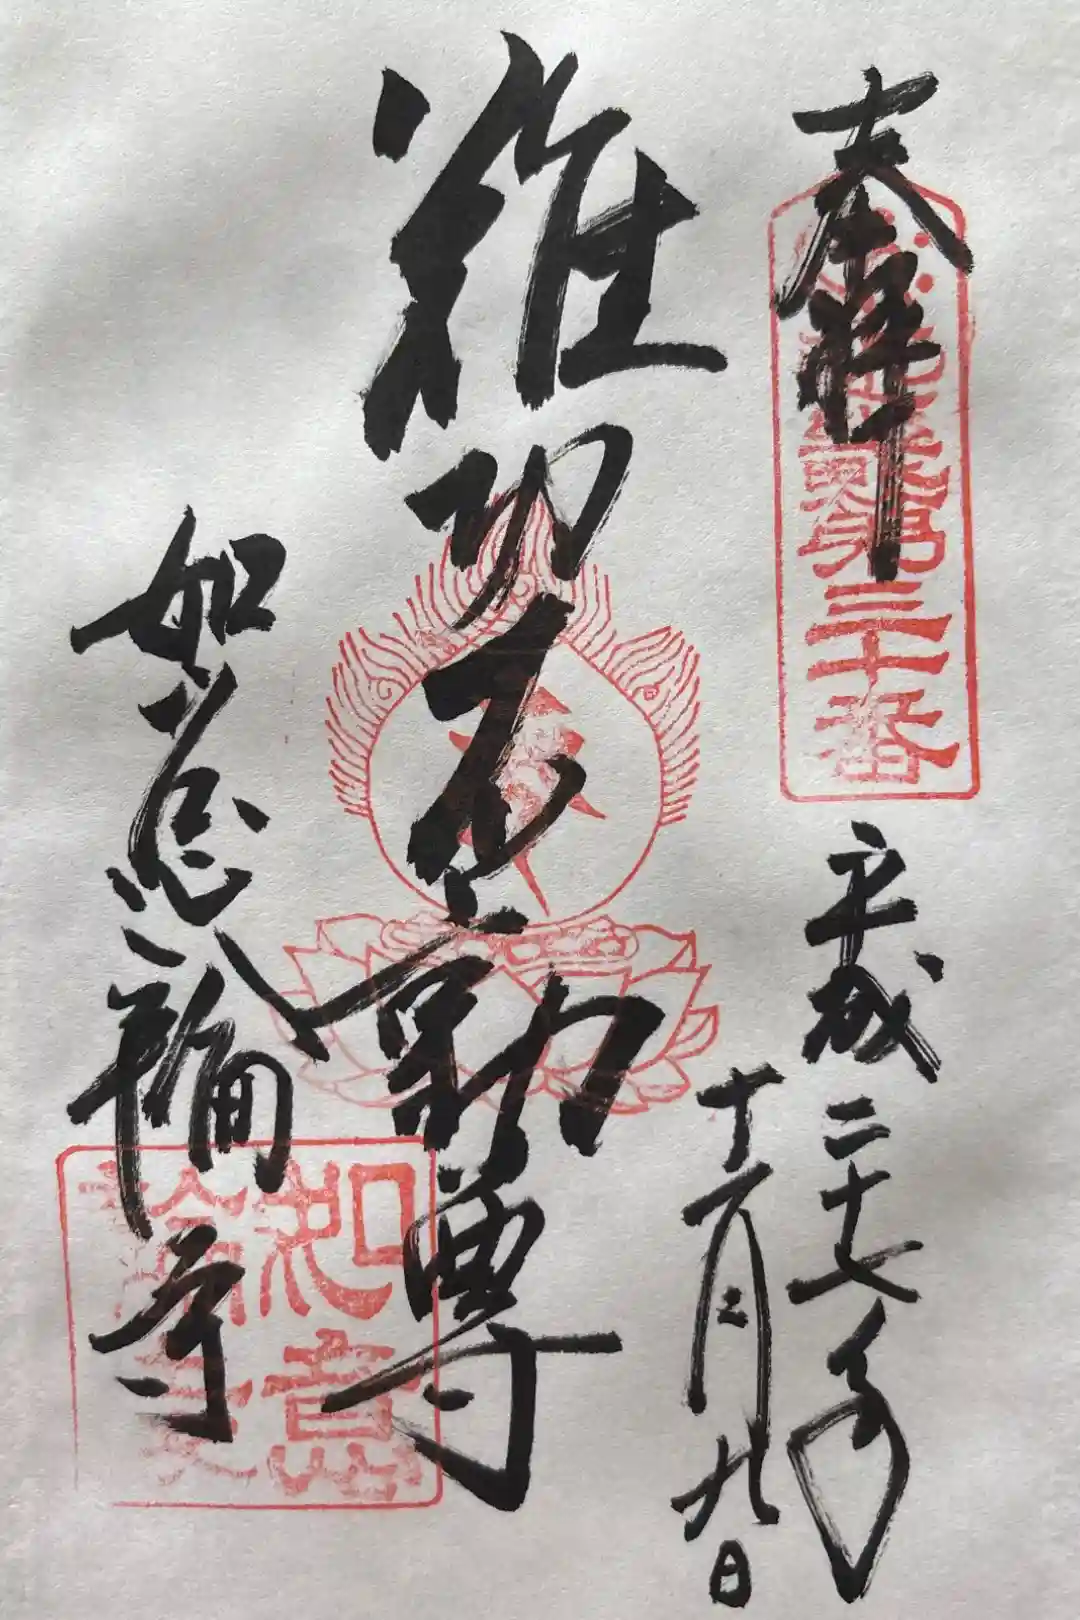 奉拝
第三十番
平成二十七年
十一月九日
難切不動尊
如意輪寺
如意
輪寺